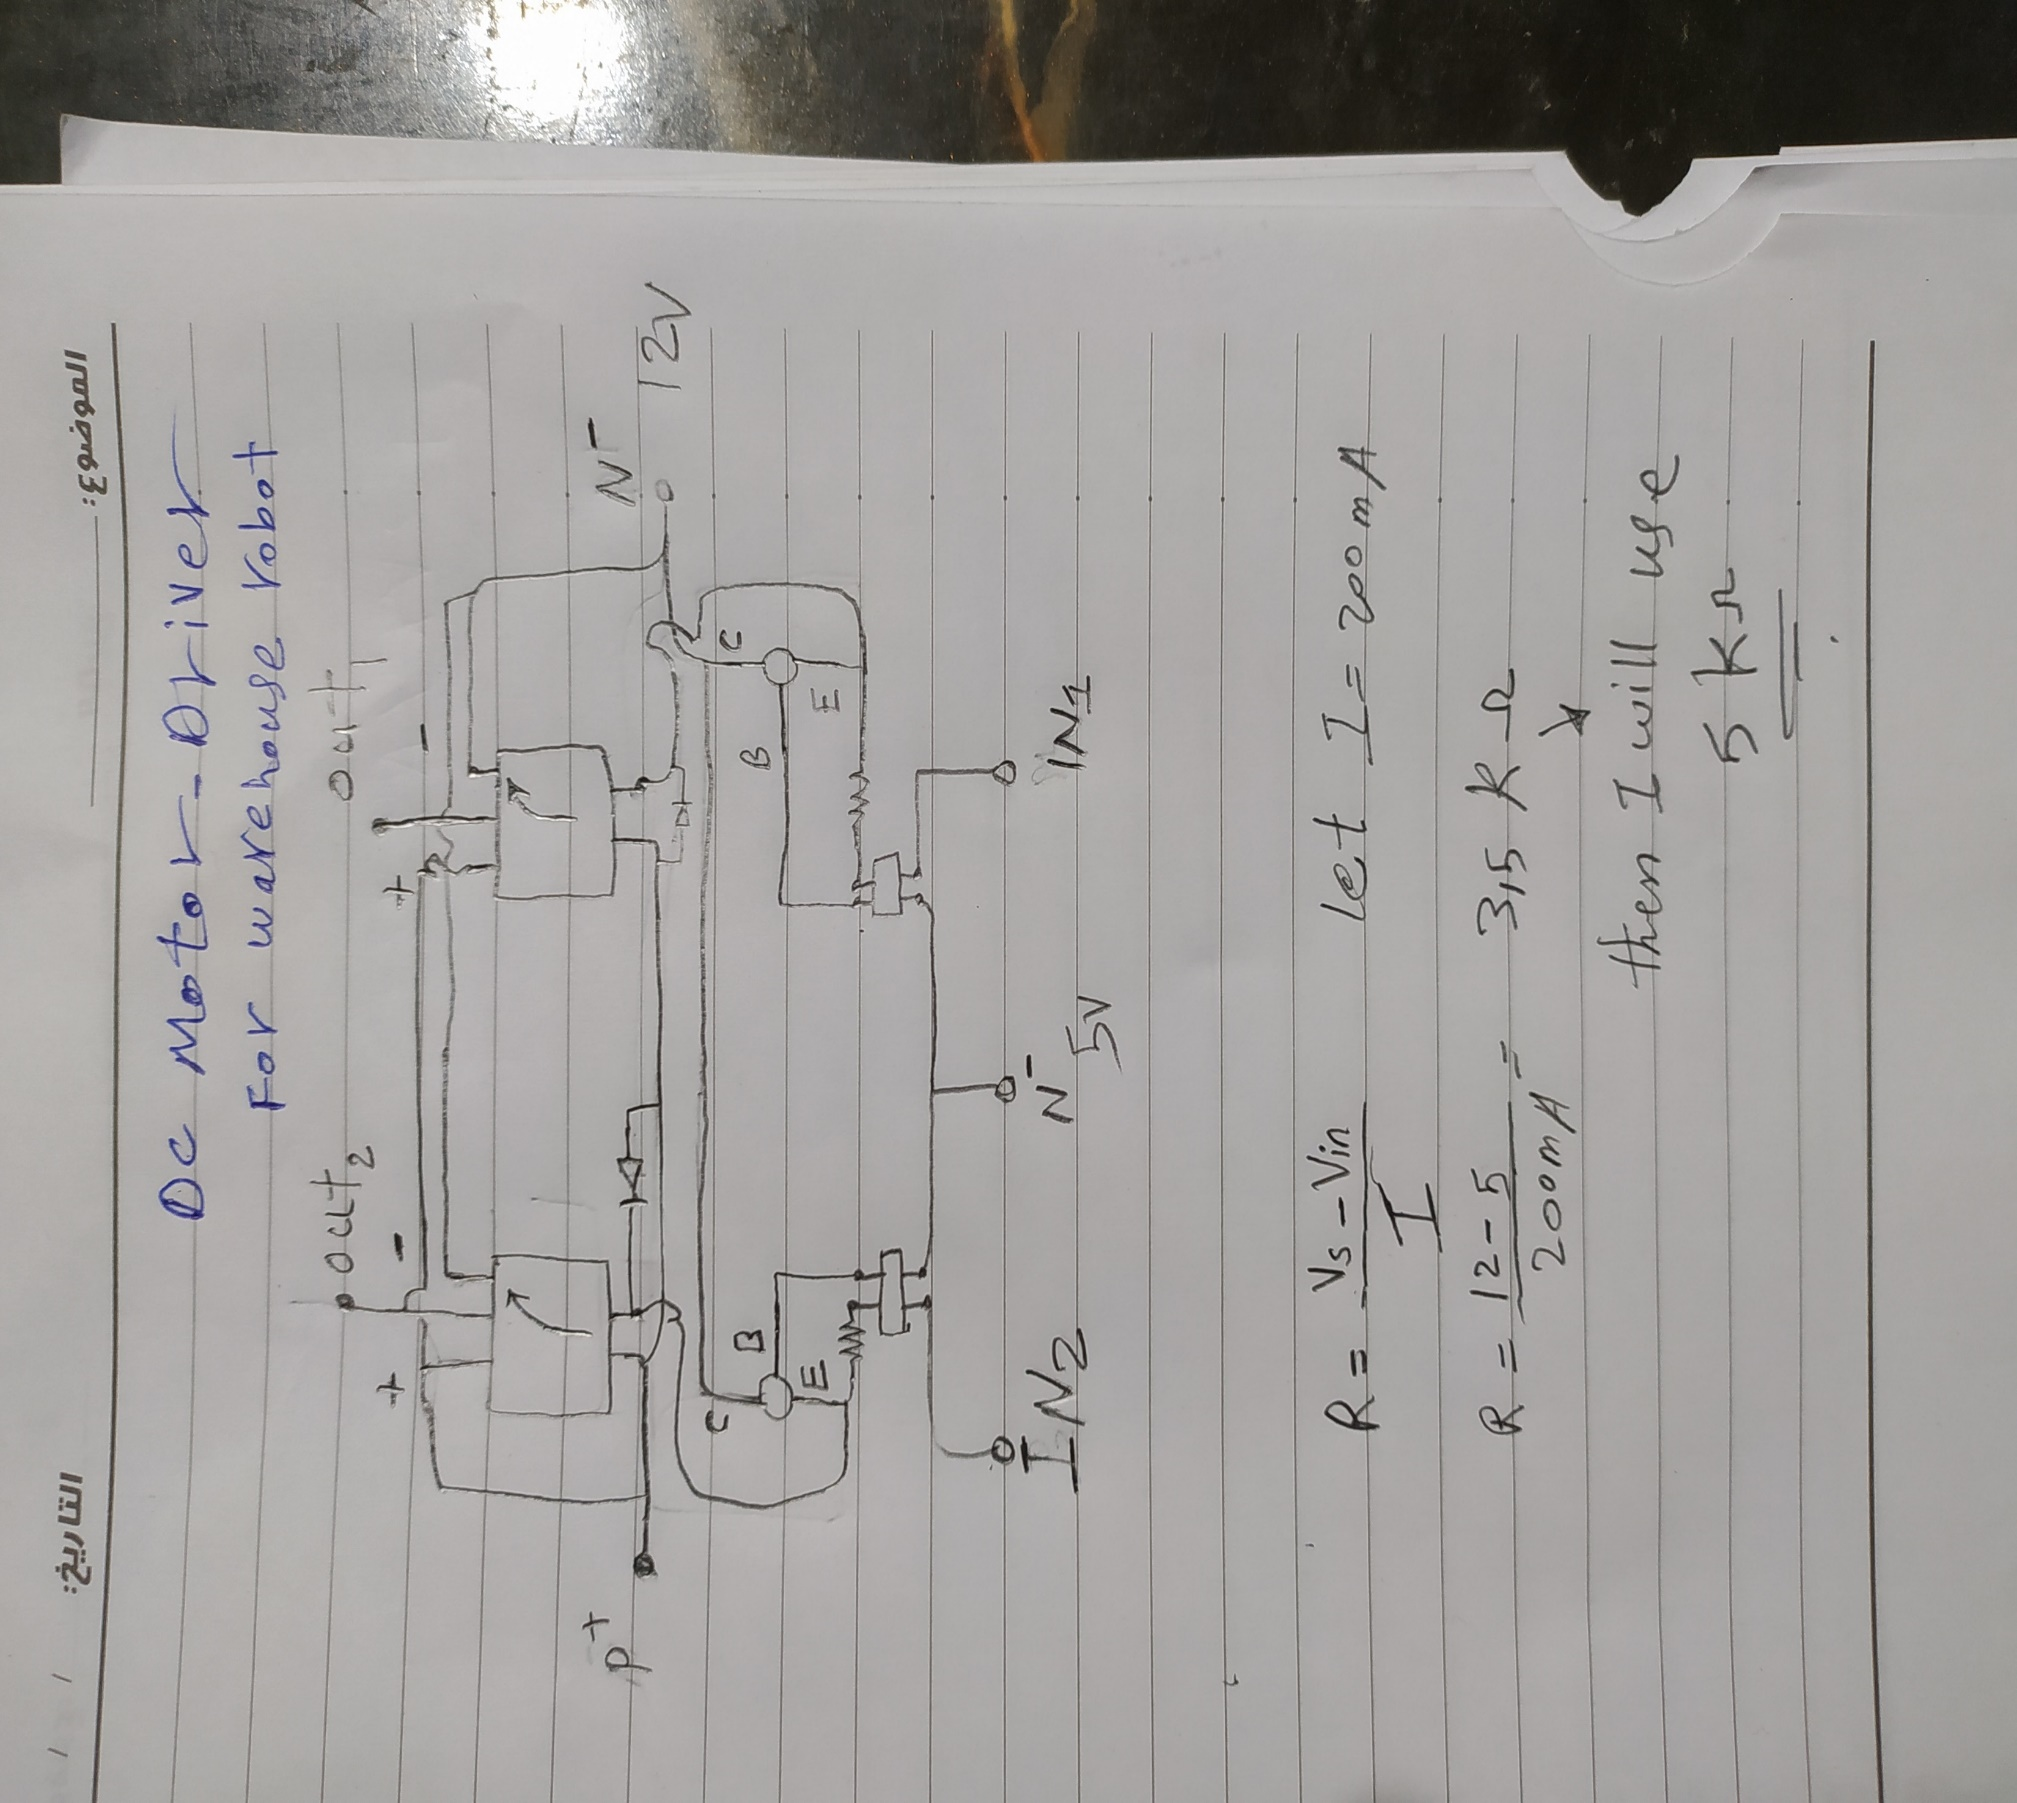 الموضوع:
التاريخ:
/ /
DC Motor-Driver
For warehouse robot
out2
out1
+ -
+ -
P+
N-
12V
C B
E
B C
E
IN2
N-
5V
IN1
R = Vs - Vin / I let I = 200mA
R = 12 - 5 / 200mA = 3,5 KΩ
then I will use
5 KΩ